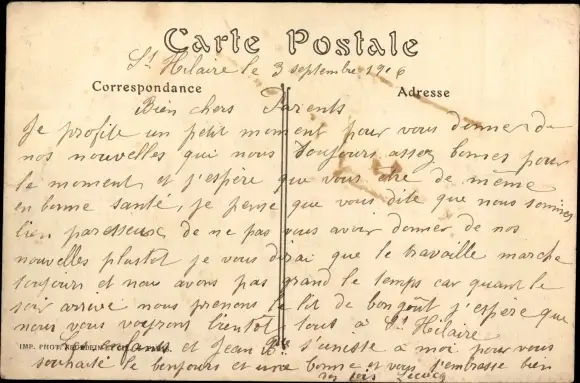 Carte Postale
St Hilaire le 3 septembre 1916
Correspondance
Adresse
Bien chers Parents
Je profite un petit moment pour vous donner de
nos nouvelles qui nous toujours assez bonnes pour
le moment et j'espère que vous être de même
en bonne santé, je pense que vous dite que nous sommes
bien paresseux, de ne pas vous avoir donner de nos
nouvelles plustot je vous dirai que le travaille marche
toujours et nous avons pas grand le temps car quant le
soir arrive nous prenons le lit de bon goût j'espère que
nous vous voyrons bientot tous à St Hilaire
IMP. PHOT.
Les enfants et Jean Bte s'unisse à moi pour vous
souhaité le bonjours et une bonne et vous embrasse bien